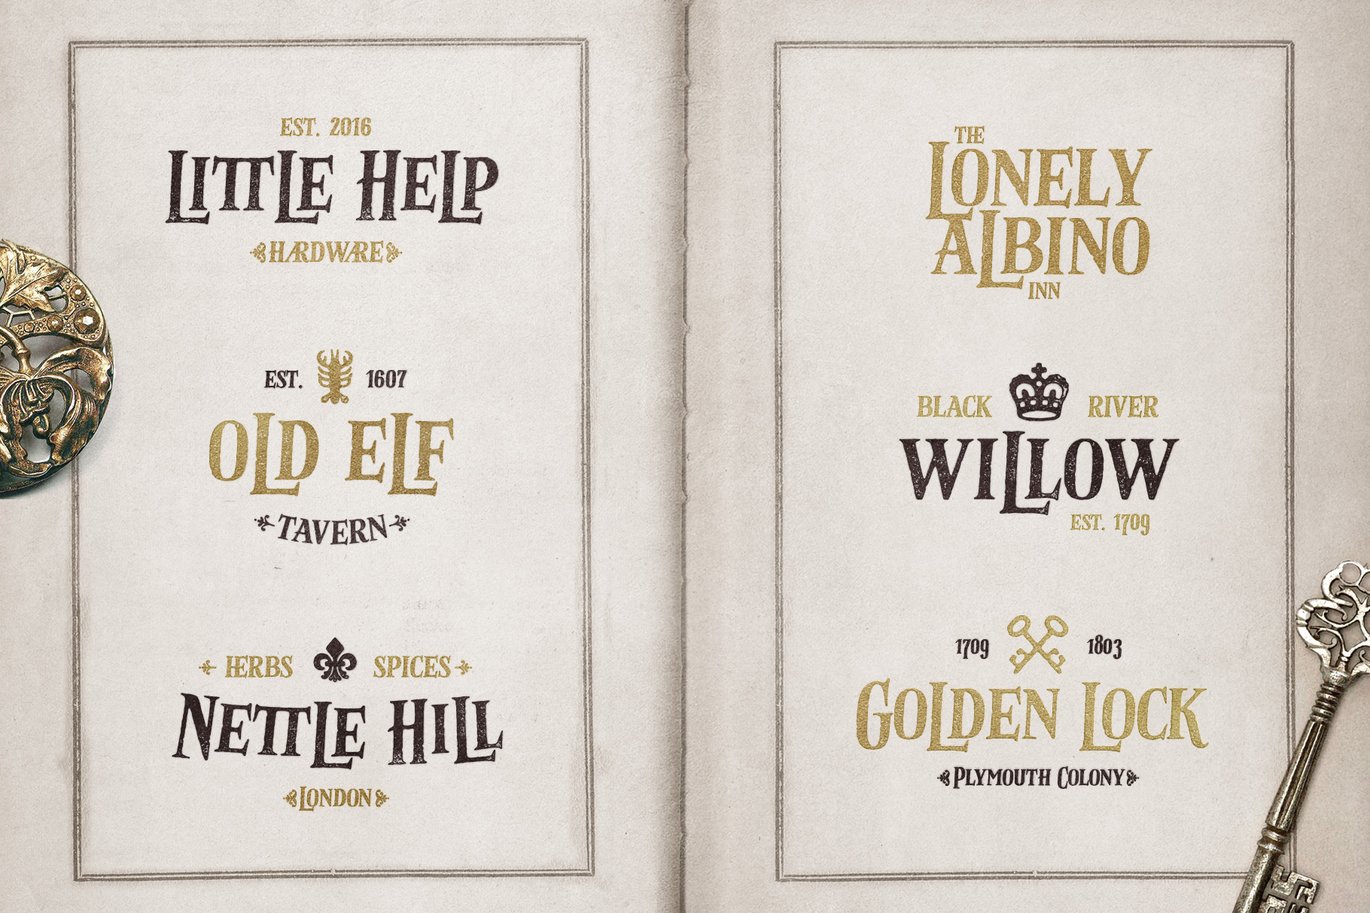 EST. 2016
LITTLE HELP
HARDWARE
EST. 1607
OLD ELF
TAVERN
HERBS SPICES
NETTLE HILL
LONDON
THE
LONELY
ALBINO
INN
BLACK RIVER
WILLOW
EST. 1709
1709 1803
GOLDEN LOCK
PLYMOUTH COLONY